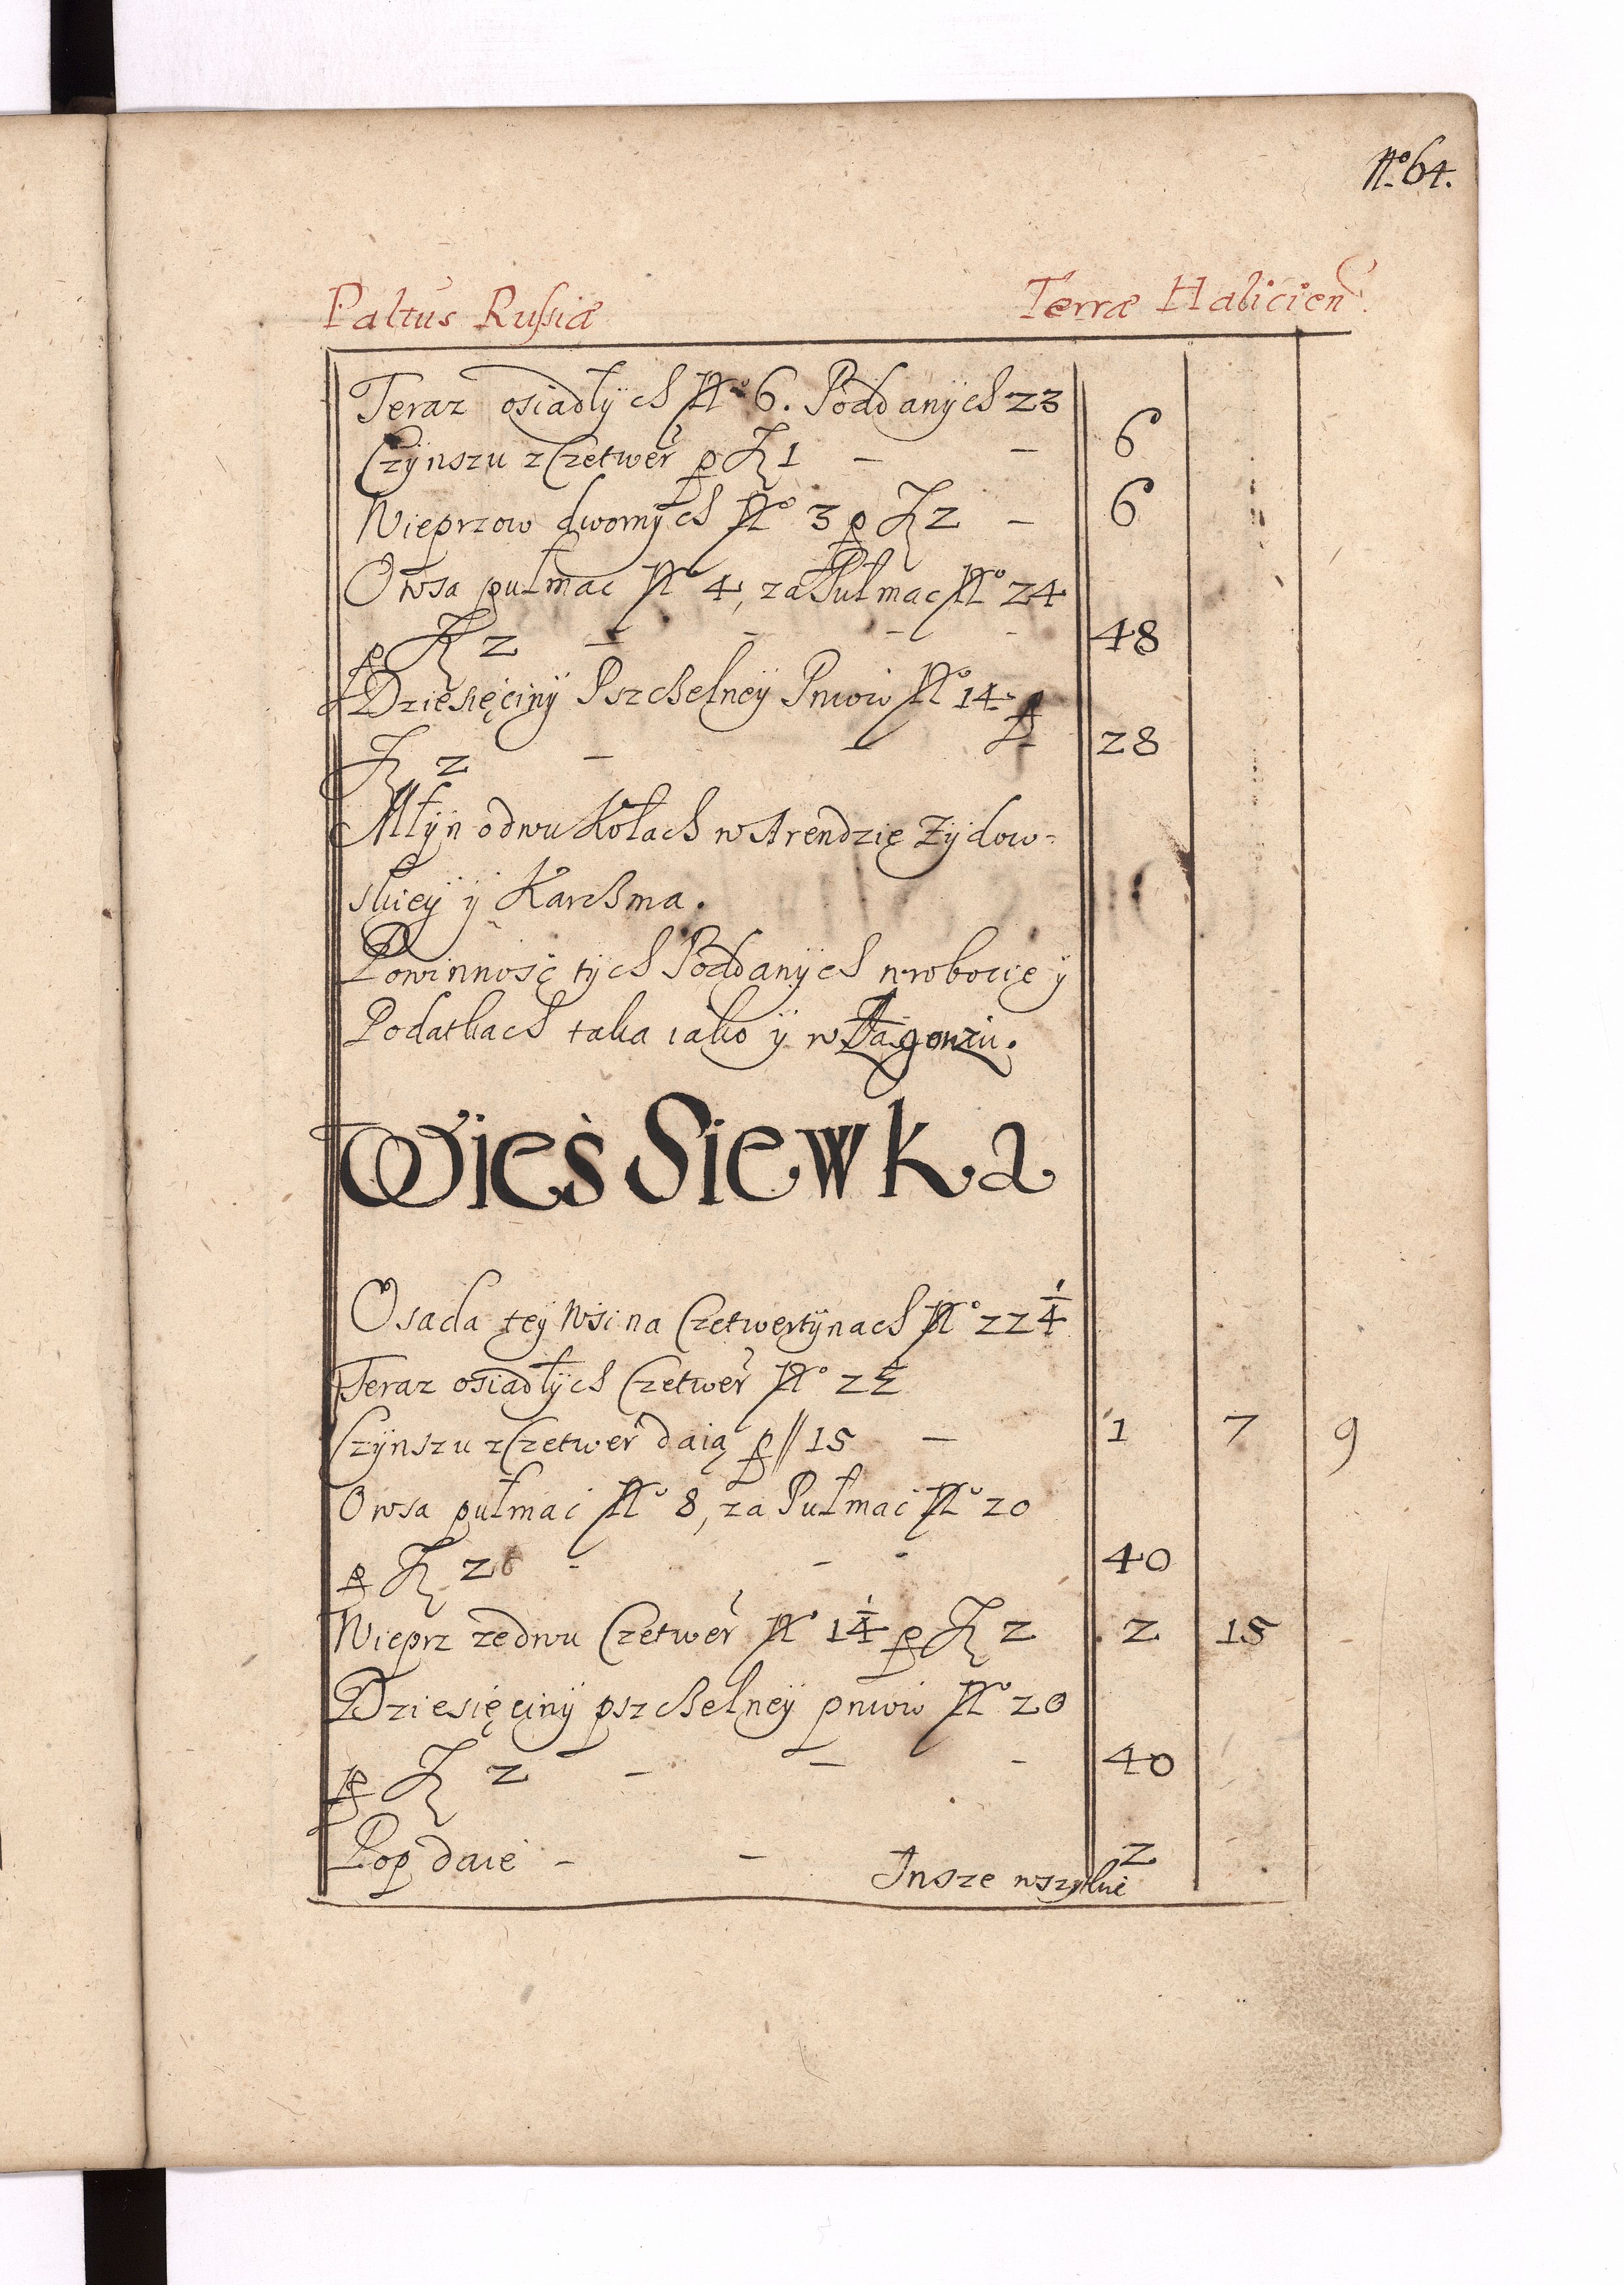 No 64.
Paltus Russiæ Terræ Halicien
Teraz osiadłÿch No 6. Poddanÿch 23
Czÿnszu z Czetwer p Zł 1 – – 6
Wieprzow dwornÿch No 3 p Zł 2 – 6
Owsa pułmac No 4, za Pułmac No 24
p Zł 2 – – – – 48
Dziesięcinÿ Pszchelneÿ Pniow No 14 p
Zł 2 – – 28
Młÿn o dwu Kołach w Arendzie Zÿdow-
skieÿ ÿ Karchma.
Powinnosc tÿch Poddanÿch w robocie ÿ
Podatkach taka iako ÿ w
Wieś Siewka
Osada teÿ Wsi na Czetwertÿnach No 22 1/4
Teraz osiadłÿch Czetwer No 2 1/2
Czÿnszu z Czetwer daią p // 15 – 1 7 9
Owsa pułmac No 8, za Pułmac No 20
p Zł 2 – – – 40
Wieprz ze dwu Czetwer No 1 1/4 p Zł 2 2 15
Dziesięcinÿ pszchelneÿ pniow No 20
p Zł 2 – – – 40
Pop daie – – 2
Insze wszytkie